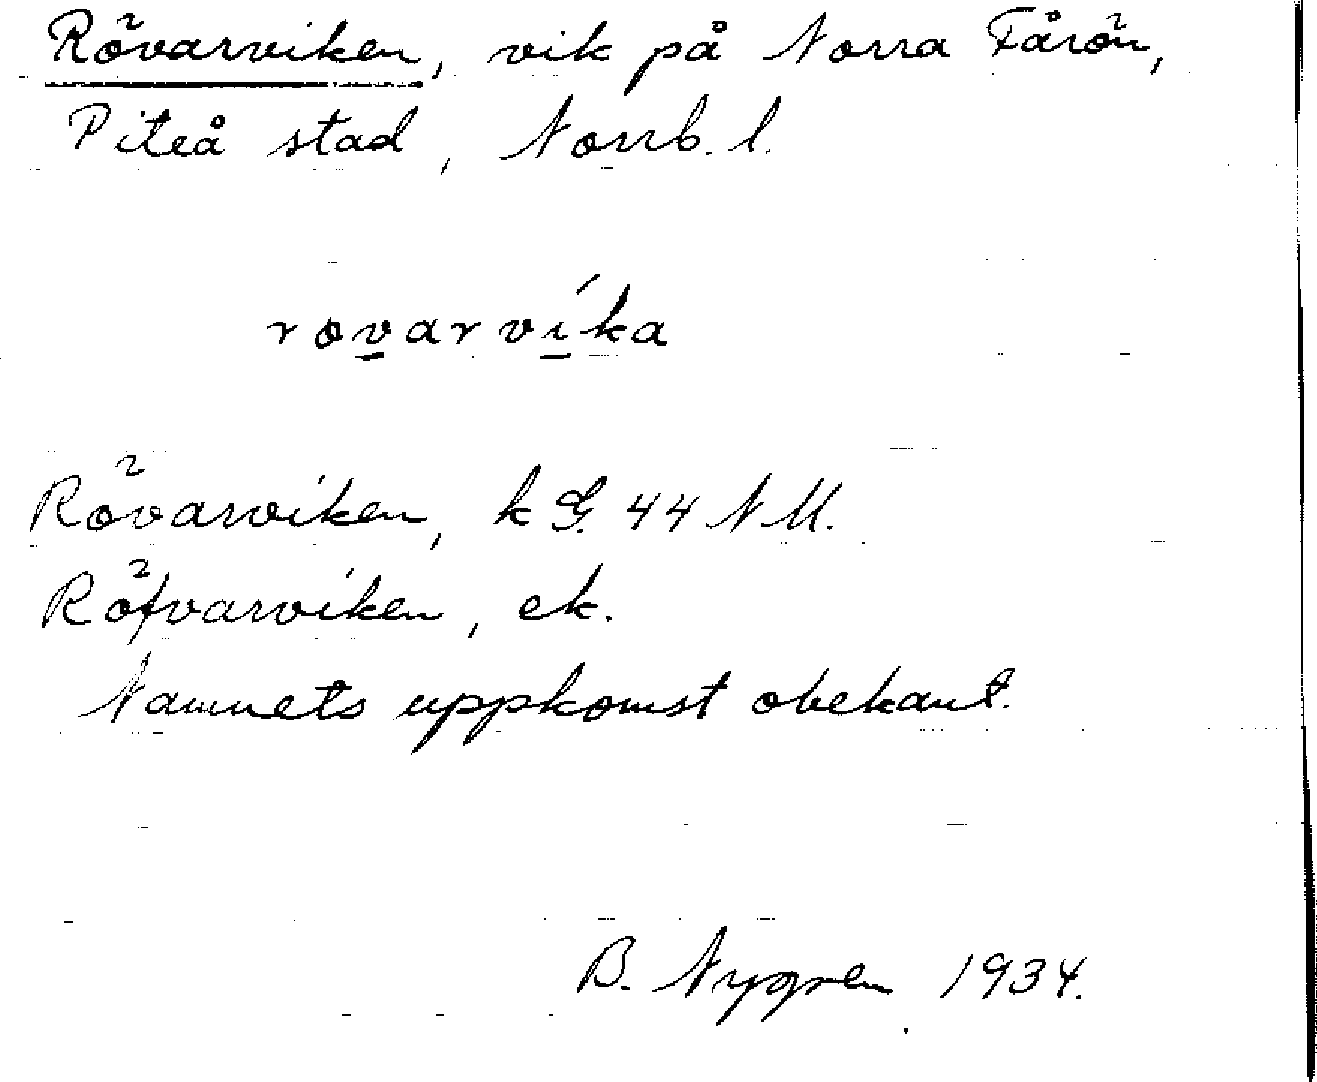 Rövarviken, vik på Norra Fårön,
Piteå stad, Norrb. l.
rovarvíka
Rövarviken, k G. 44 N M.
Röfvarviken, ek.
Namnets uppkomst obekant.
B. Nygren 1934.